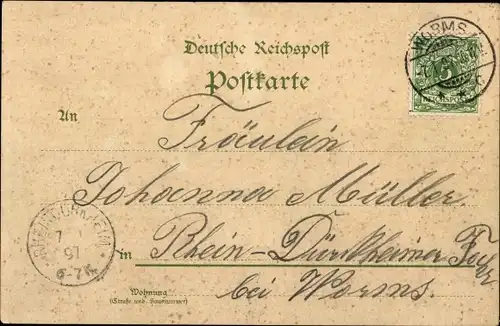 WORMS
Deutsche Reichspost
Postkarte
5
REICHSPOST
An
Fräulein
Johanna Müller
RHEINDÜRKHEIM
7
97
6-7N.
in Rhein-Dürkheimer Fahrt
bei Worms.
Wohnung
(Straße und Hausnummer)